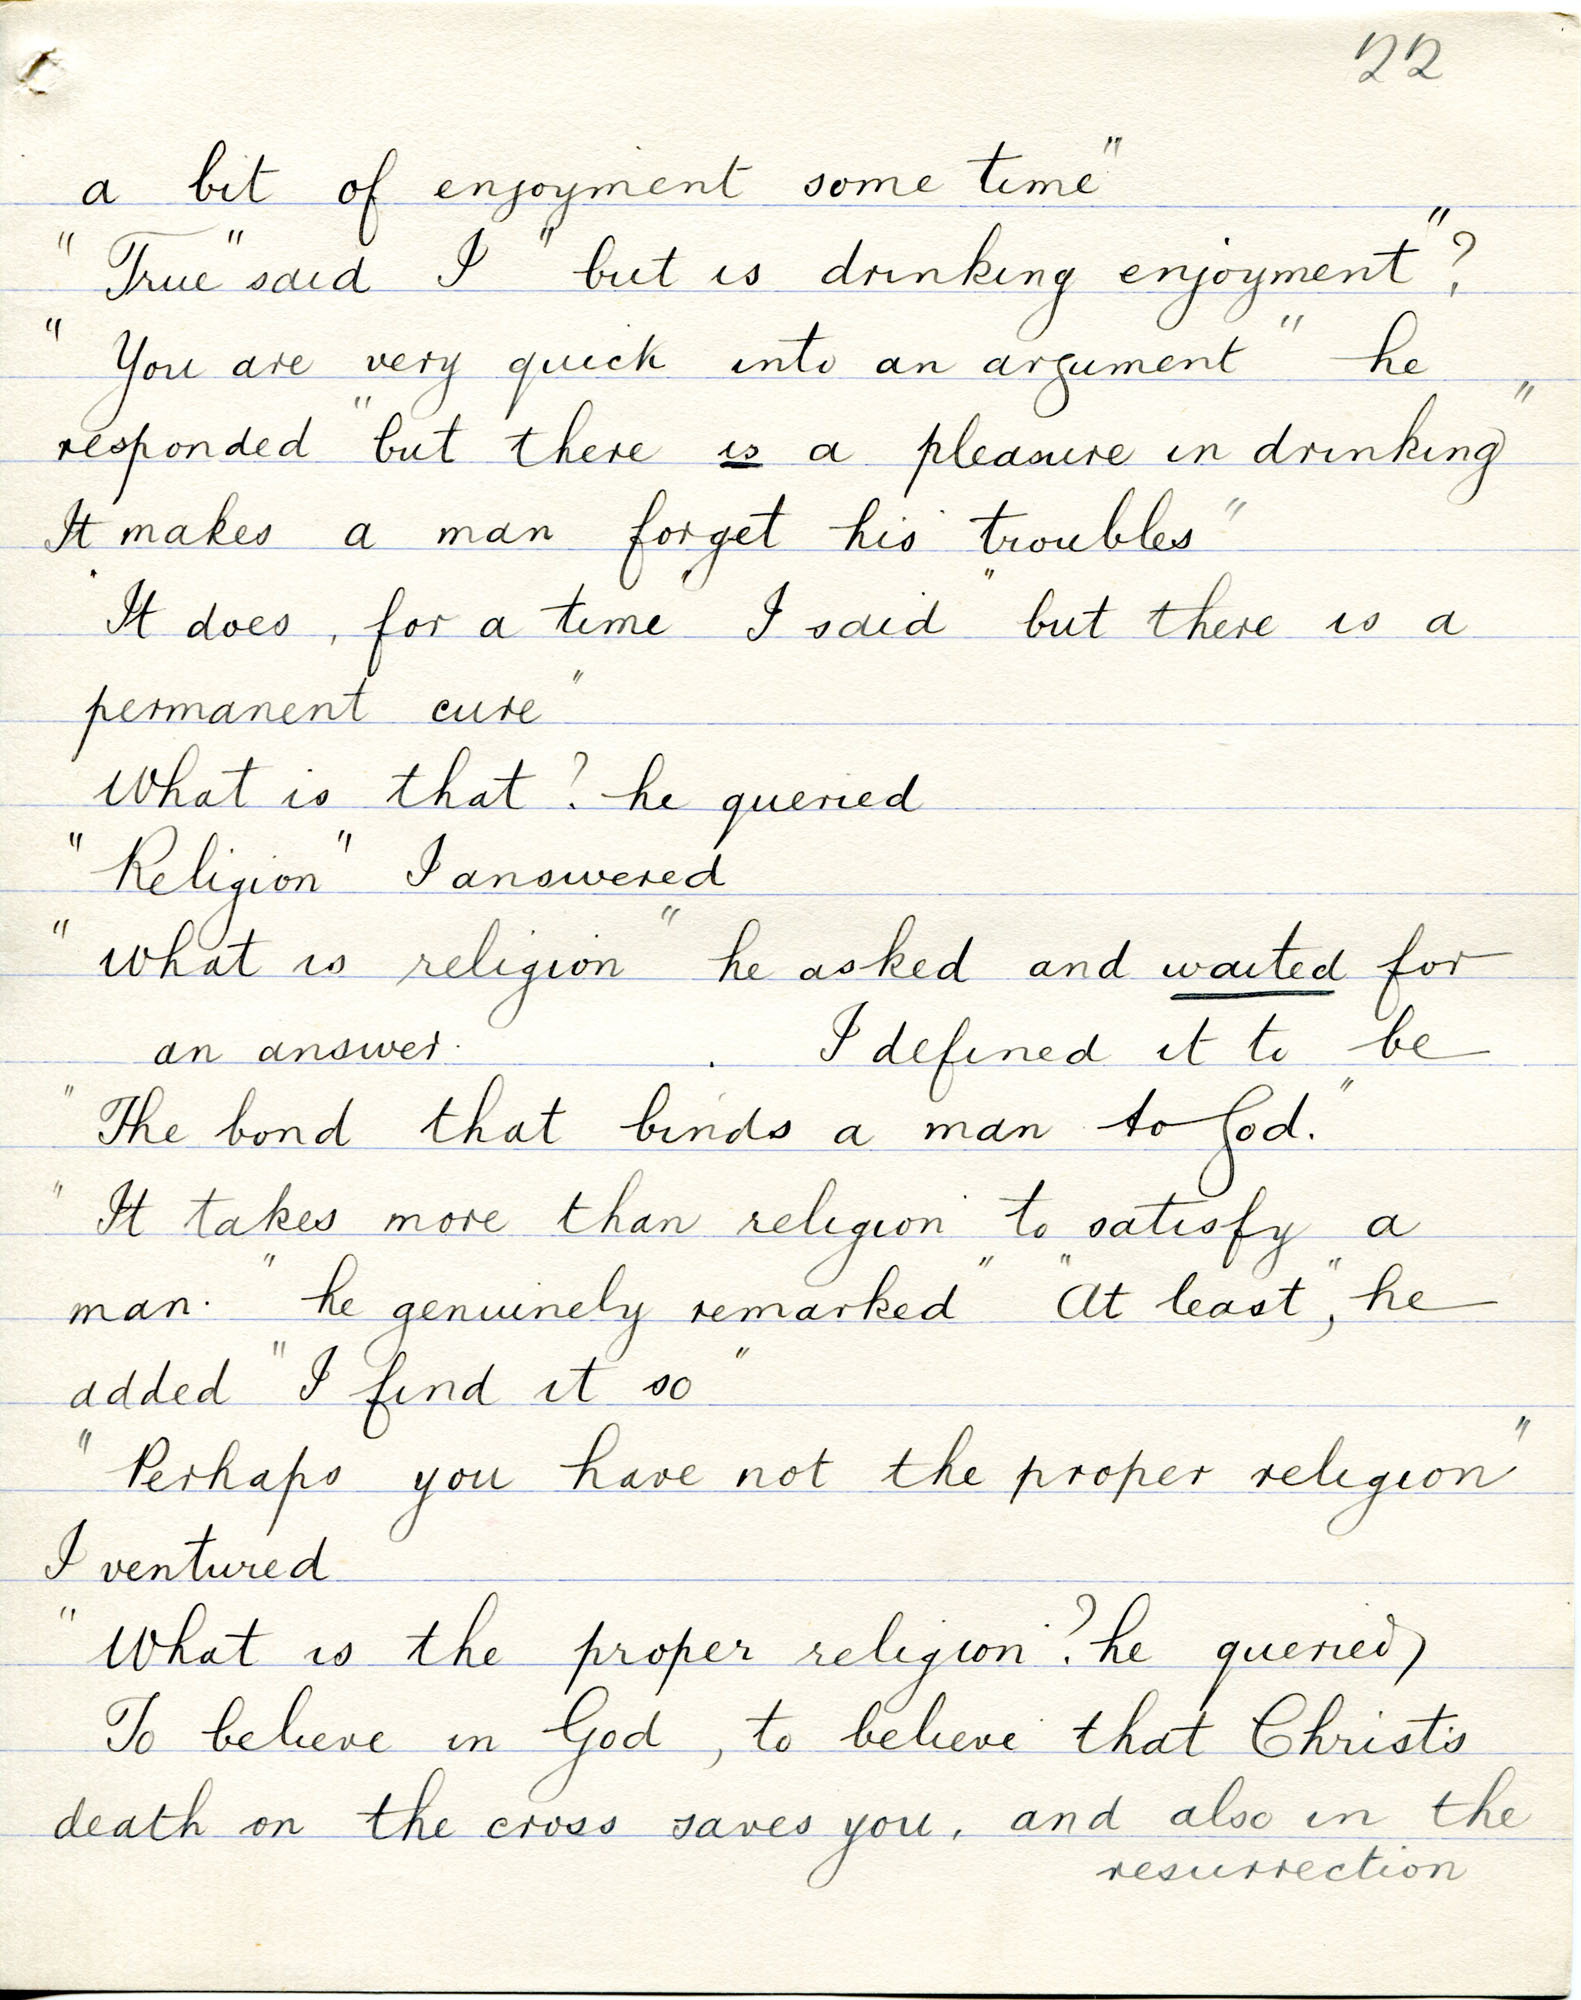 22
a bit of enjoyment some time"
"True" said I "but is drinking enjoyment"?
"You are very quick into an argument" he
responded "but there is a pleasure in drinking"
It makes a man forget his troubles"
"It does, for a time" I said "but there is a
permanent cure"
What is that? he queried
"Religion" I answered
"What is religion" he asked and waited for
an answer. . I defined it to be
"The bond that binds a man to God."
"It takes more than religion to satisfy a
man." he genuinely remarked" "At least", he
added "I find it so"
"Perhaps you have not the proper religion"
I ventured
"What is the proper religion? he queried)
To believe in God, to believe that Christ's
death on the cross saves you, and also in the
resurrection